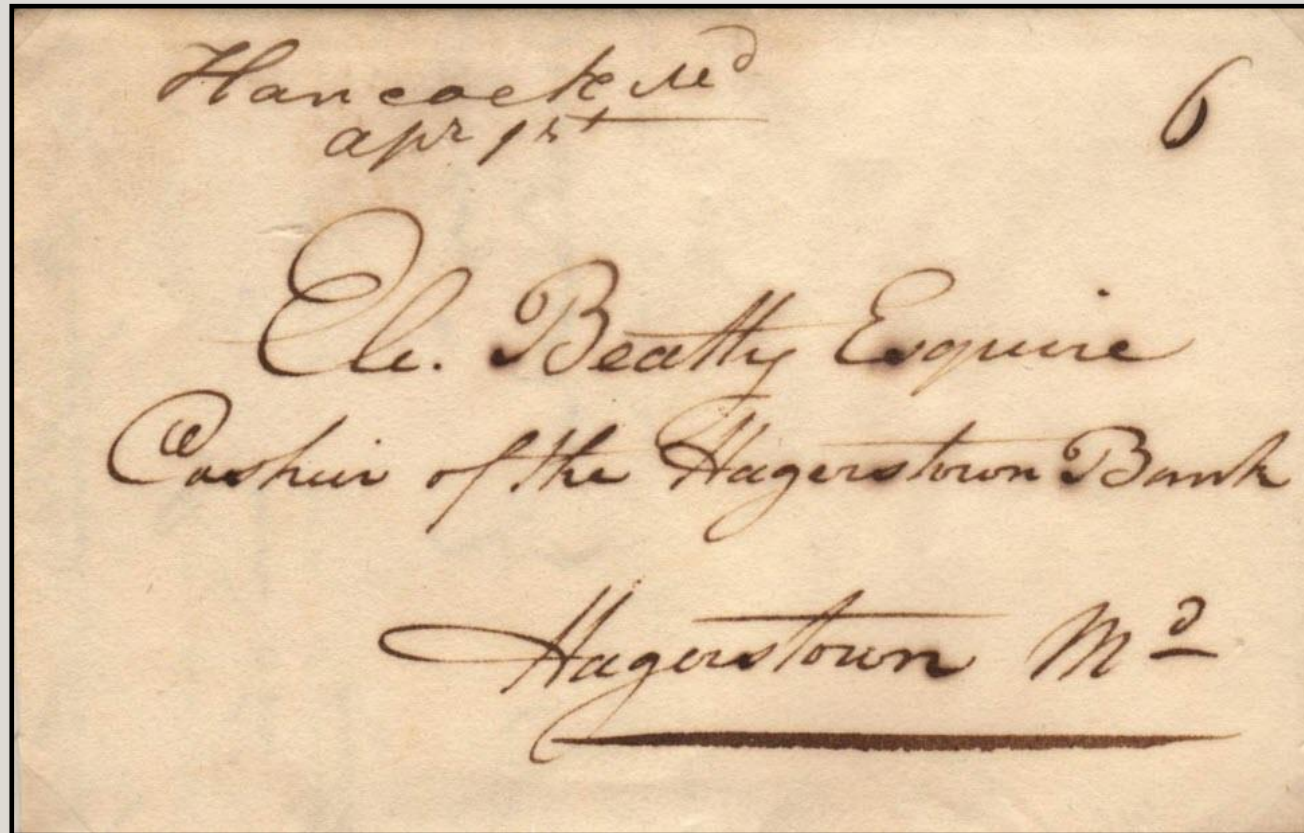 Hancock Md
6
apr 1st
Eli. Beatty Esquire
Cashier of the Hagerstown Bank
Hagerstown Md